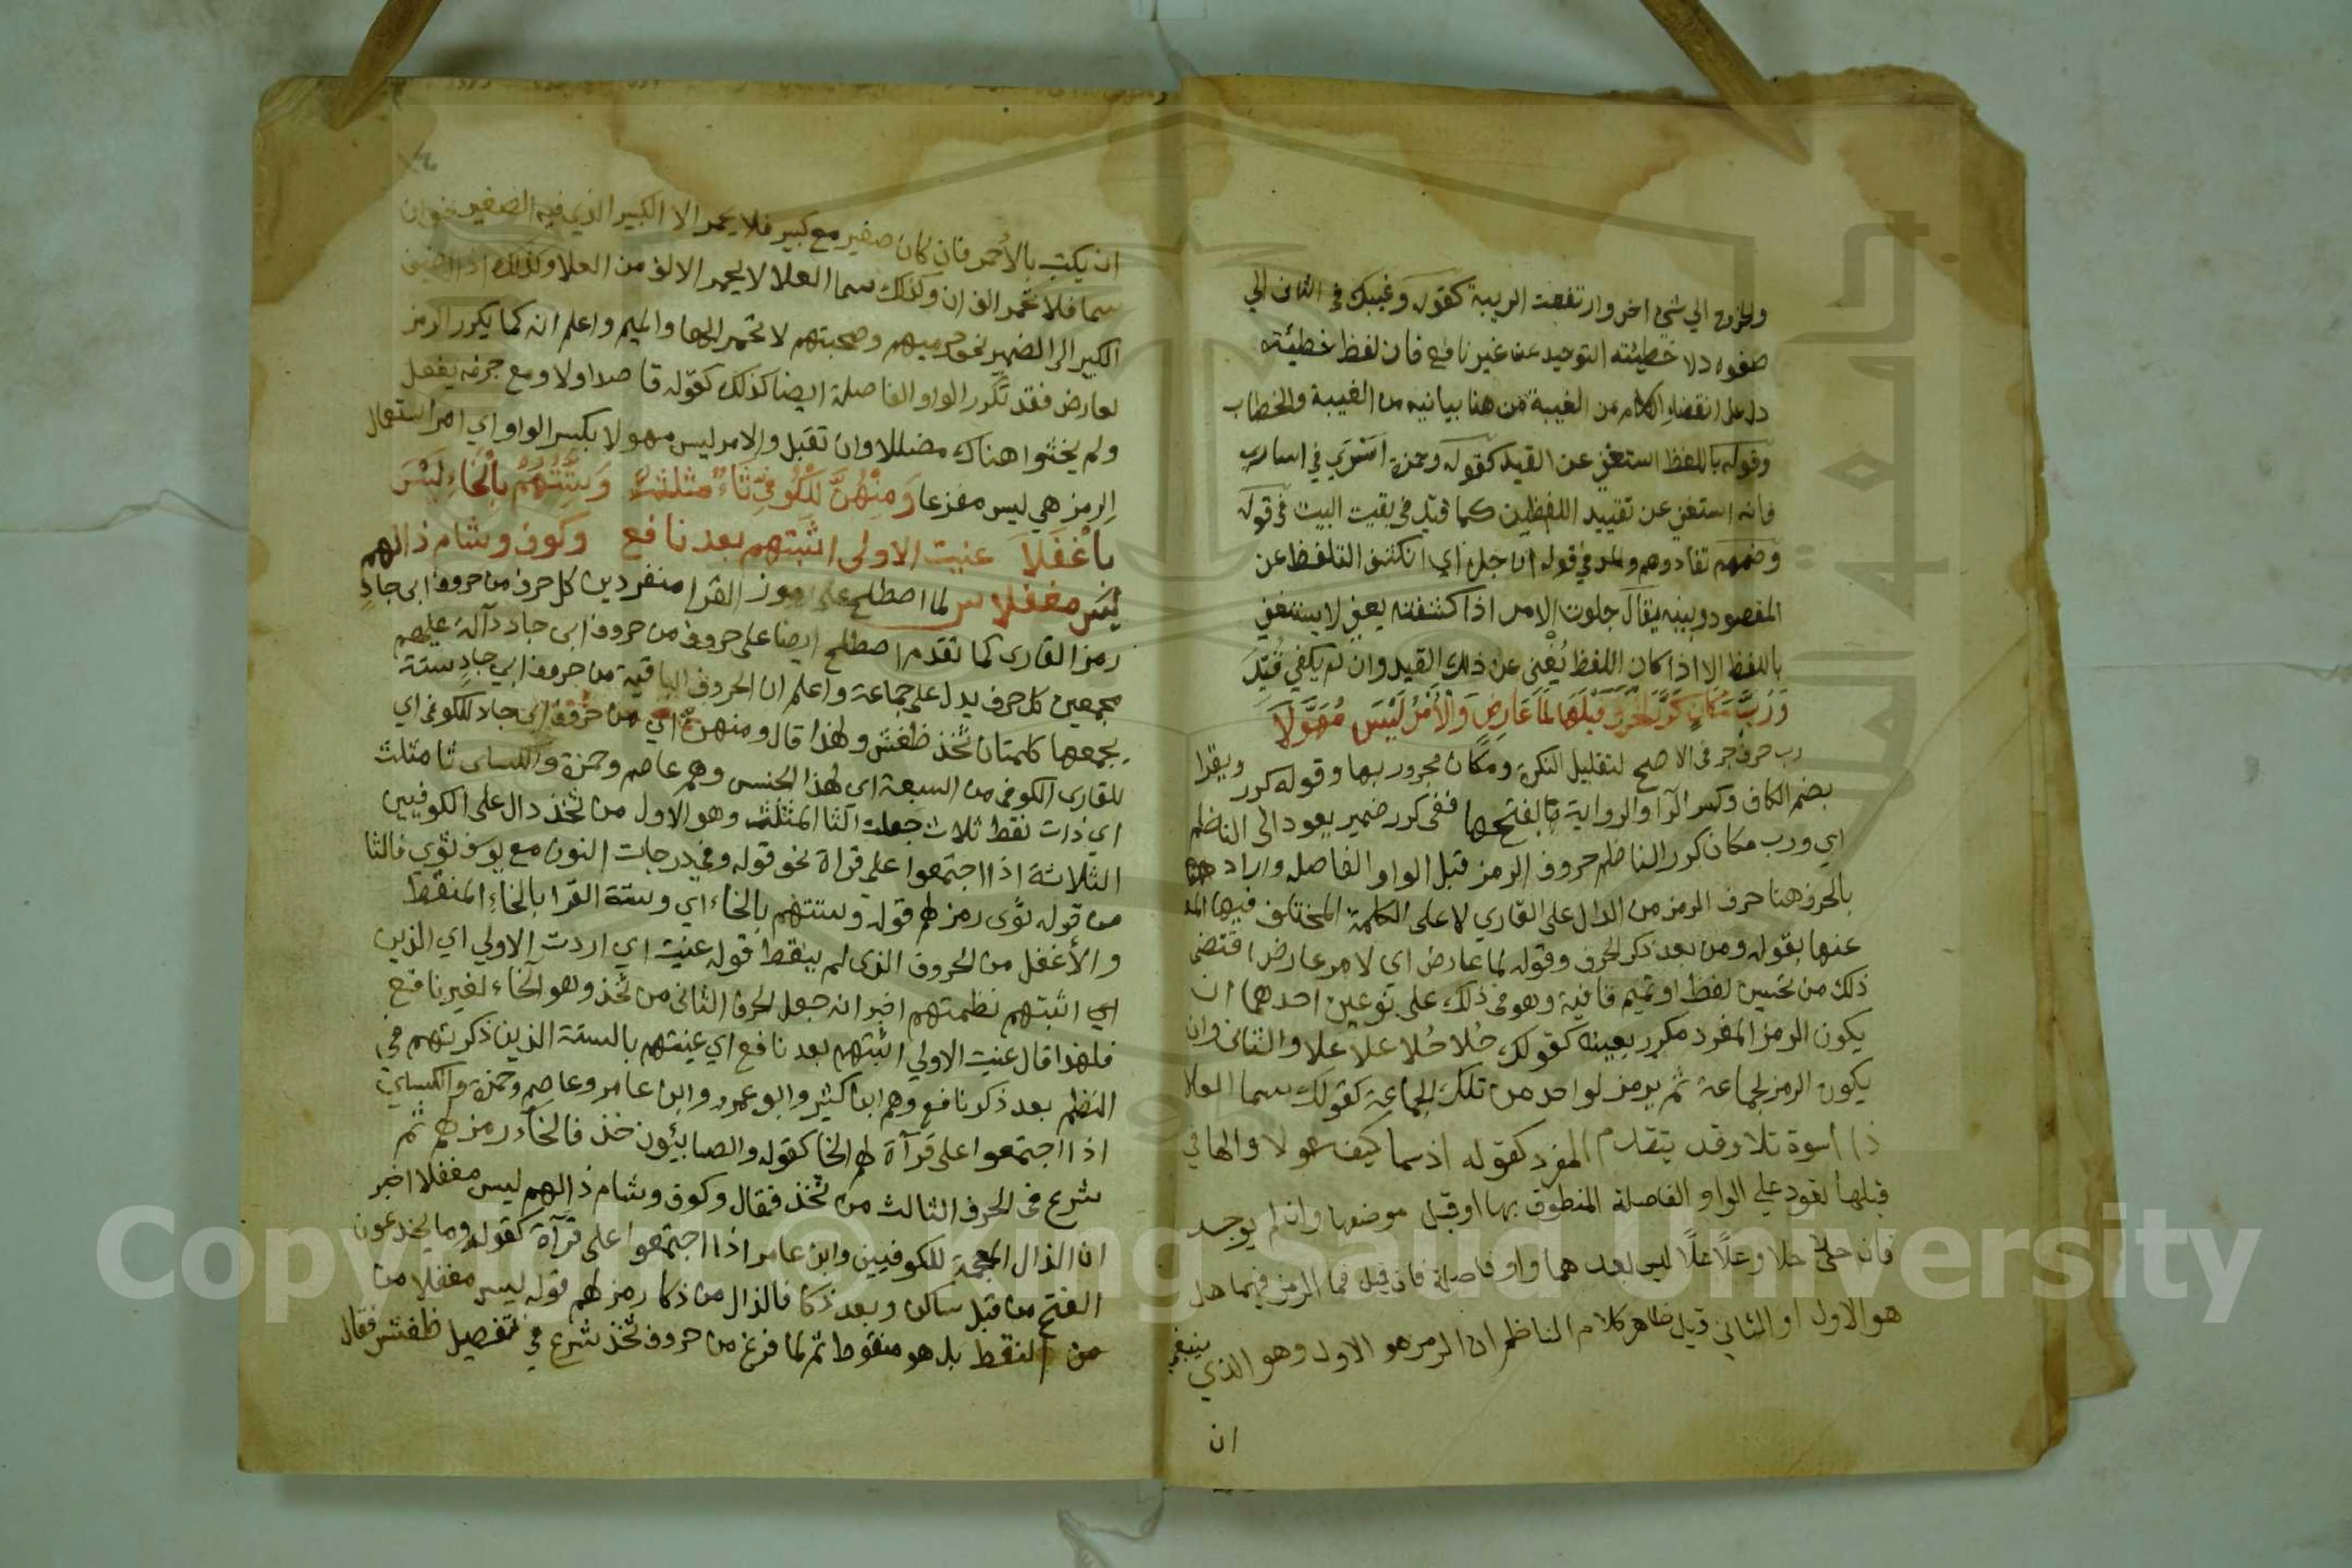 والخروج الي شيء اخر وارتفعت الريبة كقوله وغيبك في الثاني الي
صفوه دلا خطيئته التوحيد عن غير نافع فان لفظ خطيئة
دل على انقضاء الكلام من الغيبة من هنا بيانيه من الغيبة والخطاب
وقوله باللفظ استغني عن القيد كقوله وحمزة اسري في اساري
فانه استغني عن تقييد اللفظين كما قيل في بقيت البيت في قوله
وضمهم تفادوهم والمد في قوله ان جلا اي انكشف التلفظ عن
المقصود وبينه يقال جلوت الامر اذا كشفته يعني لا يستغني
باللفظ الا اذا كان اللفظ يُغْنِي عن ذلك القيد وان لم يكفي قُيِّدَ
وَرُبَّ مَكَانٍ كَرَّرَ الحَرْفَ قَبْلَهَا لِمَا عَارِضٍ وَالْأَمْرُ لَيْسَ مُهَوِّلَا
رب حرف جر في الاصح لتقليل النكرة ومكان مجرور بها وقوله كرر ويقرا
بضم الكاف وكسر الرا والرواية بالفتح ففي كرر ضمير يعود الى الناظم
اي ورب مكان كرر الناظم حروف الرمز قبل الواو الفاصله واراد
بالحرف هنا حرف الرمز من الدال على القاري لا على الكلمة المختلف فيها
عنها بقوله ومن بعد ذكر الحرف وقوله لما عارض اي لامر عارض اقتضى
ذلك من تحسين لفظ او تميم قافية وهو في ذلك على نوعين احدهما ان
يكون الرمز المفرد مكرر بعينه كقولك حُلا حُلا علا علا والثاني وان
يكون الرمز لجماعة ثم يرمز لواحد من تلك الجماعة كقولك سما العلا
ذا اسوة تلا وقد يتقدم المفرد كقوله اذ سما كيف عولا والها في
قبلها لتعود علي الواو الفاصلة المنطوق بها او قبل موضعها وان لم يوجد
فان حلا حلا وعلًا علًا ليس بعدهما واو فاصلة فان قيل فما الرمز فيهما هل
هو الاول او الثاني قيل ظاهر كلام الناظم ان الرمز هو الاول وهو الذي ينبغي
ان
ان يكتب بالاحمر فان كان صغير مع كبير فلا يحمر الا الكبير الذي فيه الصغير نحو ان
سما فلا تحمر الف ان وكذلك سما العلا لا يحمر الالف من العلا وكذلك اذا اضيف
الكبير الى الضمير نحو حرميهم وصحبتهم لا تحمر الها والميم واعلم انه كما يكرر الرمز
لعارض فقد تكرر الواو الفاصلة ايضا كذلك كقوله قاصدا ولا ومع جزمه يفعل
ولم يخشوا هناك مضللا وان تقبل والامر ليس مهولا بكسر الواو اي امر استعمال
الرمز هي ليس مفزعا وَمِنْهُنَّ لِلْكُوفِيِّ ثَاءٌ مثلثٌ وَسِتَّتُهُمْ بِالْخَاءِ لَيْسَ
بِأَغْفَلَا عنيت الاولى اثبتهم بعد نافع وكوف وشام ذالهم
لَيْسَ مغفلا لما اصطلح على رموز القرا منفردين كل حرف من حروف ابى جادٍ
رمز القارى كما تقدم اصطلح ايضا على حروف من حروف ابى جاد دآلة عليهم
مجمعين كل حرف يدل على جماعة واعلم ان الحروف الباقية من حروف ابي جادٍ ستة
يجمعها كلمتان ثخذ ظغش ولهذا قال ومنهن اي من حروف ابى جاد للكوفي اي
للقارى الكوفي من السبعة اى لهذا الجنس وهم عاصم وحمزة والكساى ثا مثلث
اي ذات نقط ثلاث جعلت الثا المثلث وهو الاول من ثخذ دال على الكوفيين
الثلاثة اذا اجتمعوا على قراة نحو قوله وفي درجات النون مع يوسف ثوي فالثا
من قوله ثوى رمز لهم قوله وستتهم بالخاء اي وستة القرا بالخاءِ المنقط
والأغفل من الحروف الذى لم ينقط قوله عنيت اي اردت الاولي اي الذين
اي اثبتهم نظمتهم اخبر انه جعل الحرف الثانى من ثخذ وهو الخاء لغير نافع
فلهذا قال عنيت الاولي اثبتهم بعد نافع اي عنيتهم بالستة الذين ذكرتهم في
النظم بعد ذكر نافع وهم ابن كثير وابو عمرو وابن عامر وعاصم وحمزة والكساي
اذا اجتمعوا على قرآة لهم الخا كقوله والصابئون خذ فالخاء رمز لهم ثم
شرع في الحرف الثالث من ثخذ فقال وكوف وشام ذالهم ليس مغفلا اخبر
ان الذال المعجمة للكوفيين وابن عامر اذا اجتمعوا على قرآة كقوله وما يخدعون
الفتح من قبل ساكن وبعد ذكا فالذال من ذكا رمز لهم قوله ليس مغفلا من
من النقط بل هو منقوط ثم لما فرغ من حروف ثخذ شرع في تفصيل ظغش فقال
Copyright © King Saud University